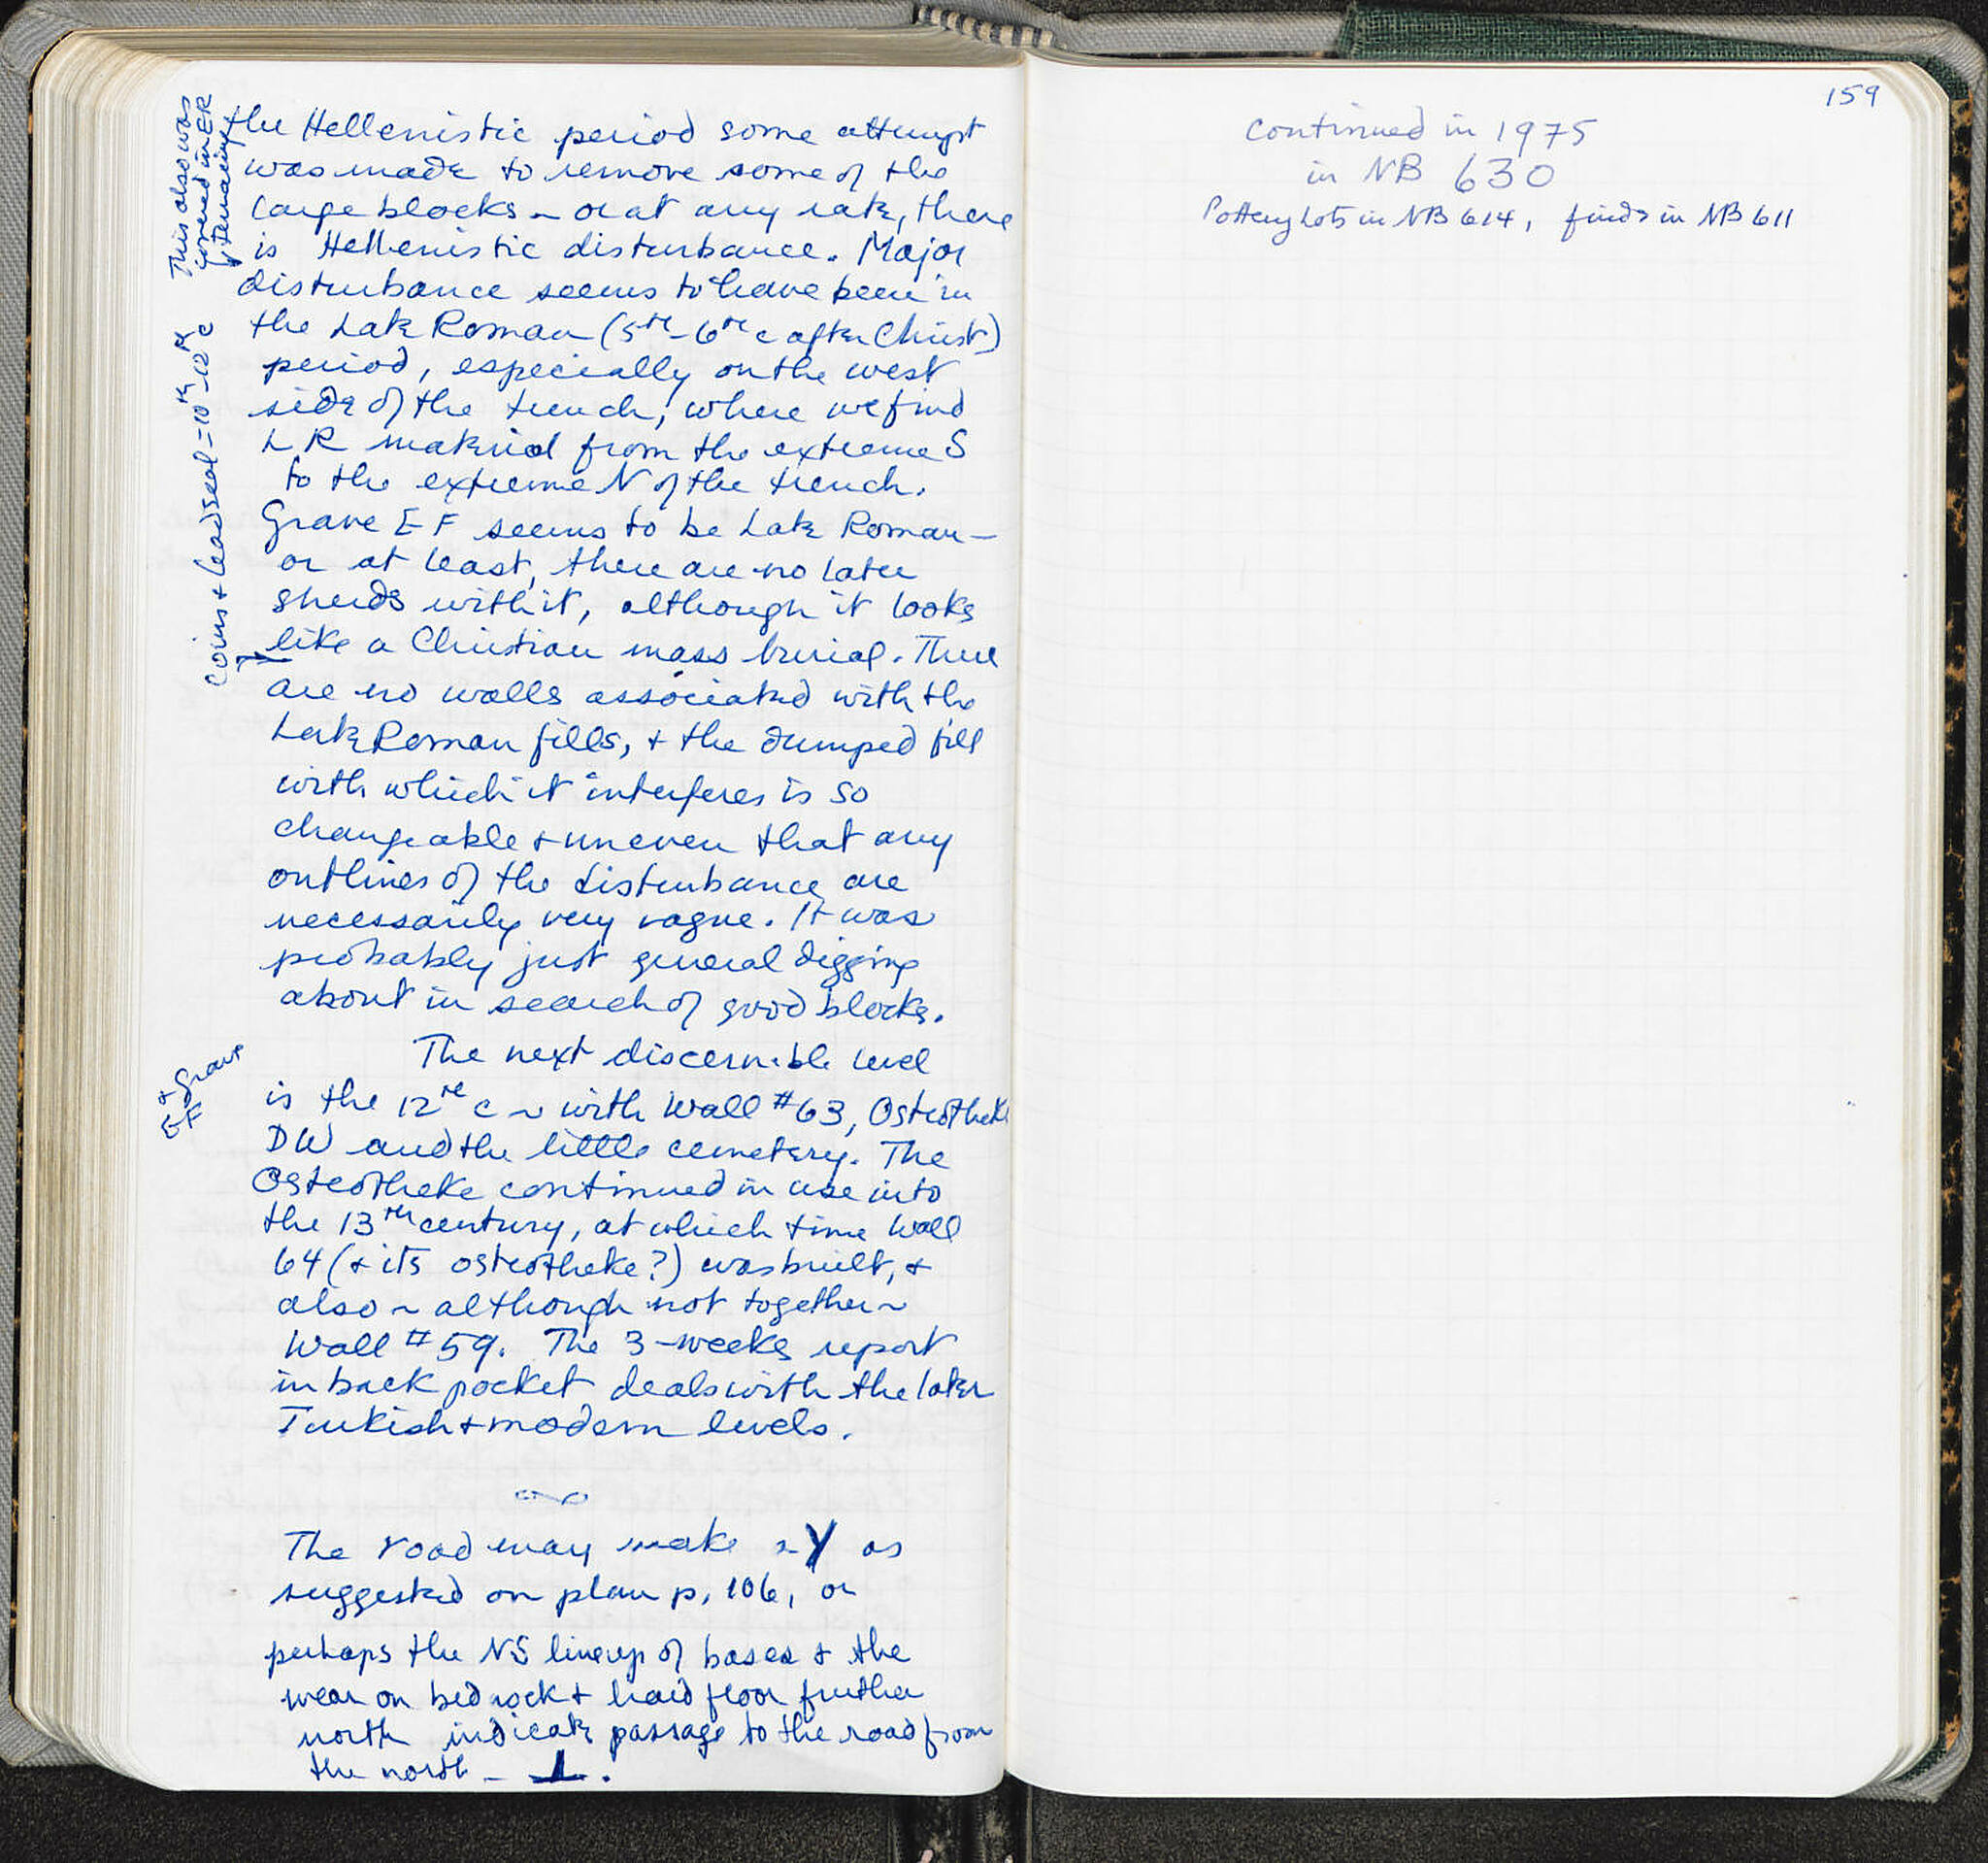 This also was
covered in ER
& remained
the Hellenistic period some attempt
was made to remove some of the
large blocks ~ or at any rate, there
is Hellenistic disturbance. Major
disturbance seems to have been in
the Late Roman (5th-6th c after Christ)
period, especially on the west
side of the trench, where we find
LR material from the extreme S
to the extreme N of the trench.
Grave EF seems to be Late Roman —
or at least, there are no later
sherds with it, although it looks
like a Christian mass burial. There
Coins + lead seal = 10th-12th c
are no walls associated with the
Late Roman fills, + the dumped fill
with which it interferes is so
changeable + uneven that any
outlines of the disturbance are
necessarily very vague. It was
probably just general digging
about in search of good blocks.
The next discernible level
is the 12th c ~ with Wall #63, Osteotheke
+ Grave
EF
DW and the little cemetery. The
Osteotheke continued in use into
the 13th century, at which time Wall
64 (+ its osteotheke?) was built, +
also ~ although not together ~
Wall #59. The 3-weeks report
in back pocket deals with the later
Turkish + modern levels.
The road may make a Y as
suggested on plan p. 106, or
perhaps the NS lineup of bases + the
wear on bedrock + hard floor further
north indicate passage to the road from
the north — ⊥.
159
Continued in 1975
in NB 630
Pottery Lots in NB 614, finds in NB 611